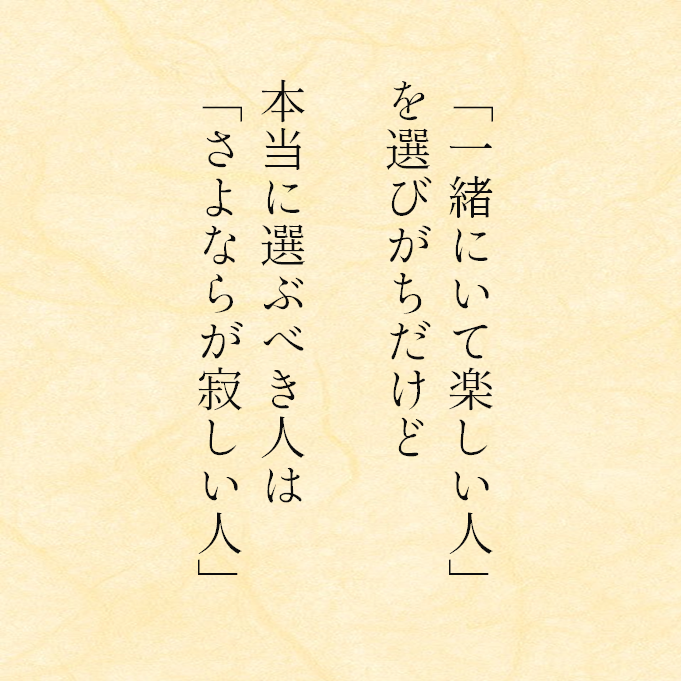 「一緒にいて楽しい人」
を選びがちだけど
本当に選ぶべき人は
「さよならが寂しい人」